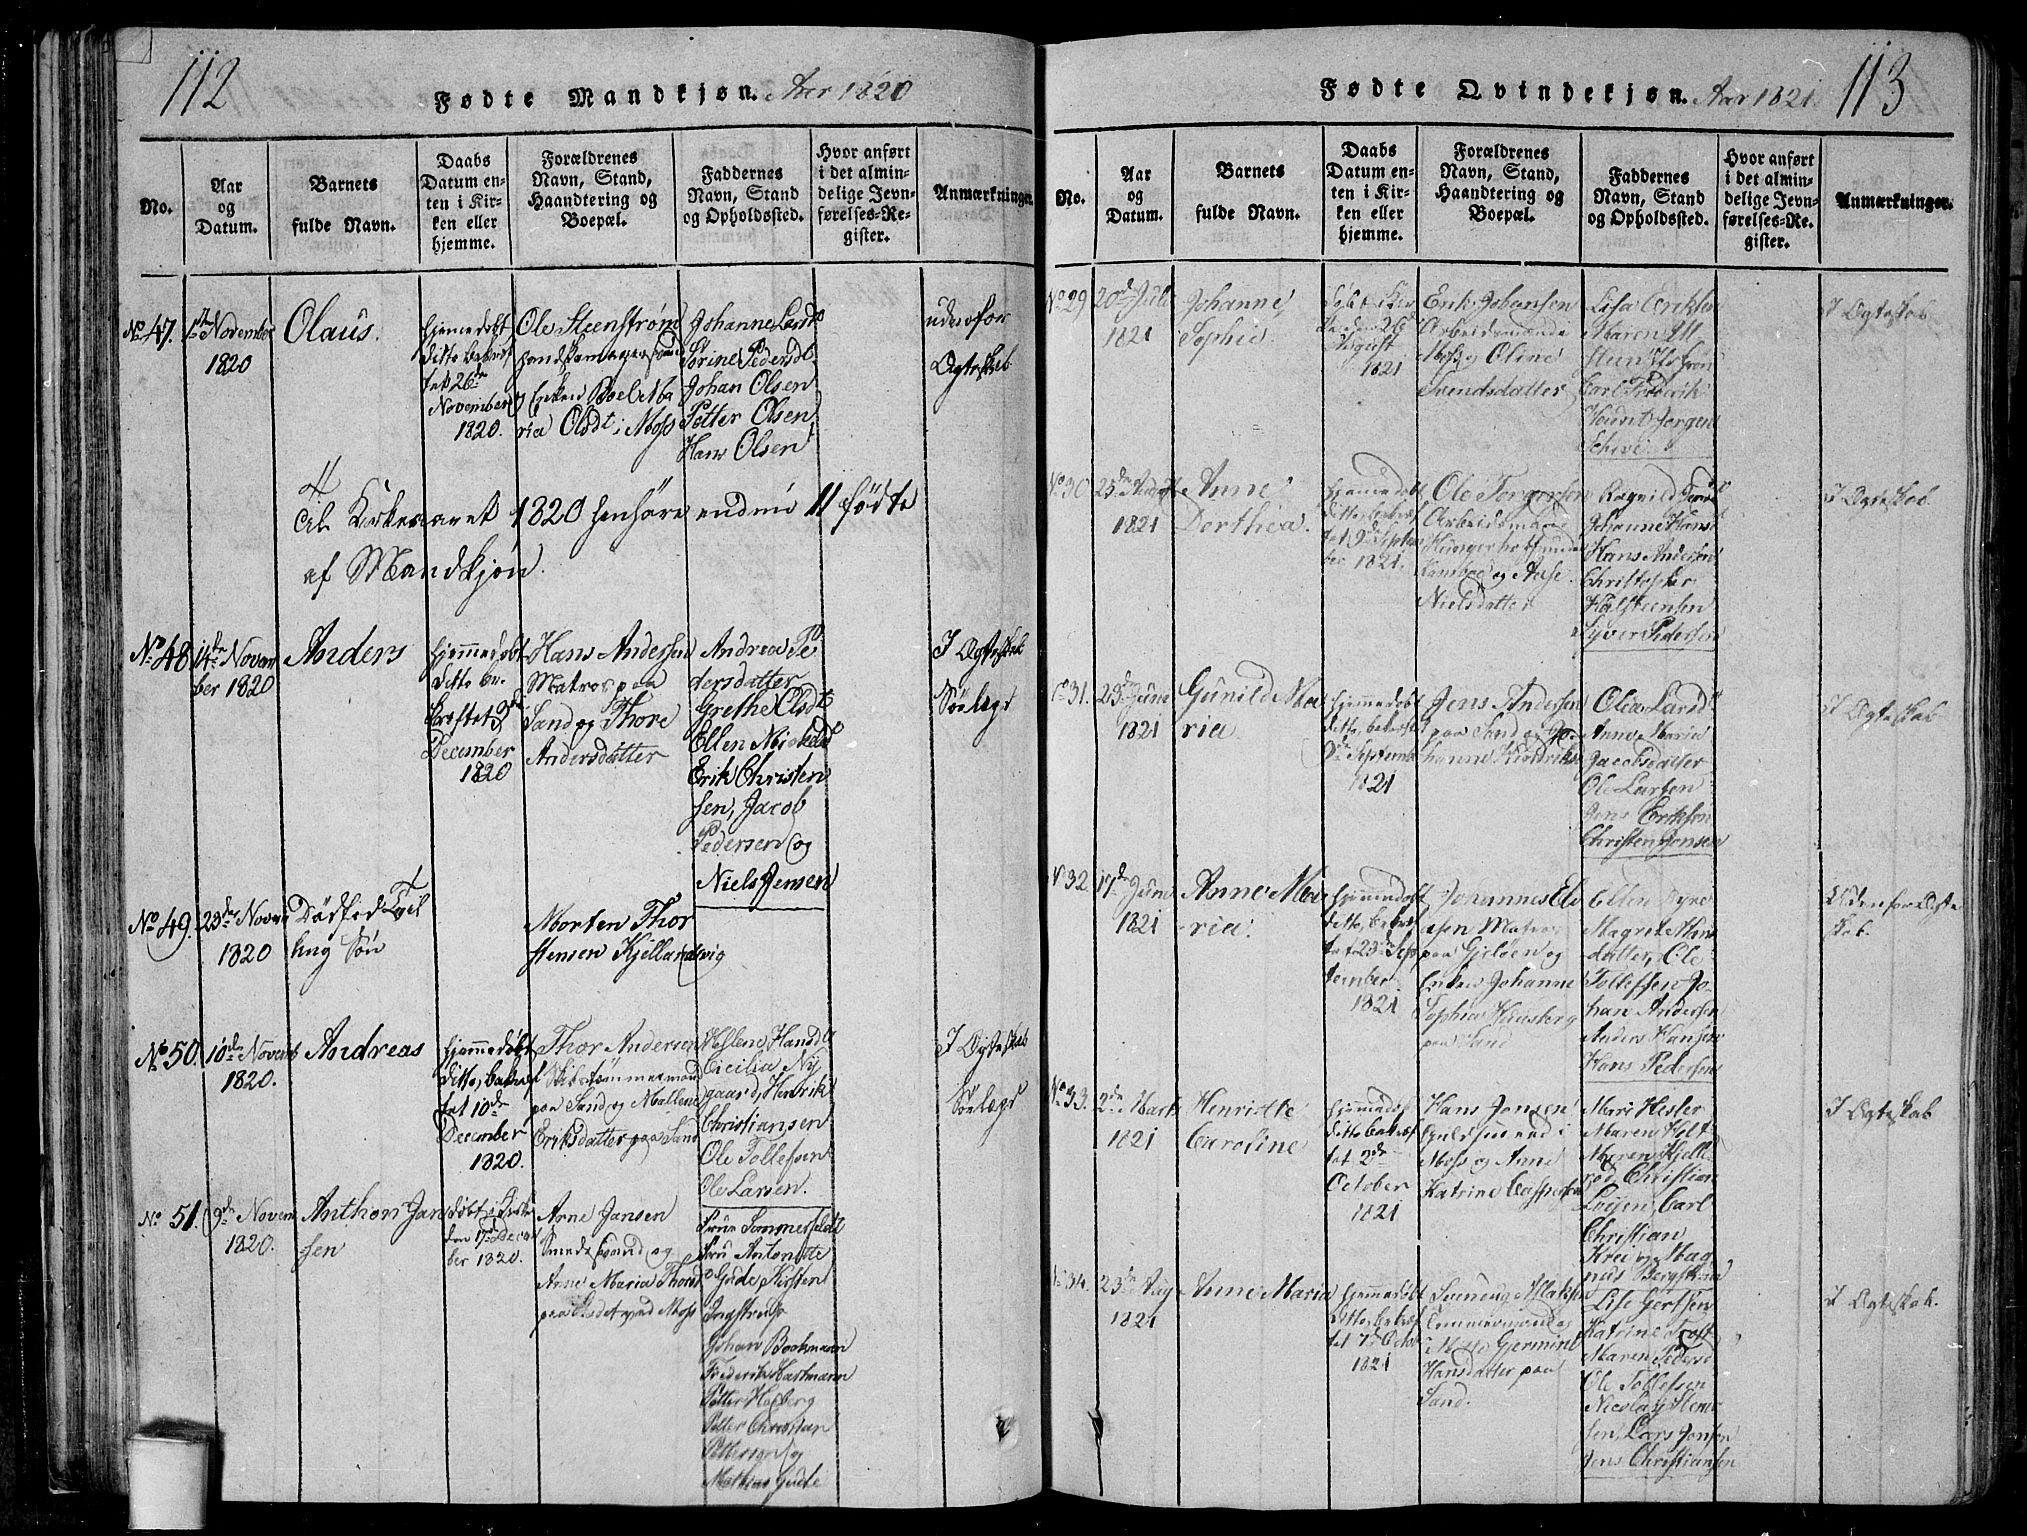 112
Fødte Mandkjøn. Aar 1820
No.
Aar
og
Datum.
Barnets
fulde Navn.
Daabs
Datum en-
ten i Kir-
ken eller
hjemme.
Forældrenes
Navn, Stand,
Haandtering og
Boepæl.
Faddernes
Navn, Stand
og Opholdssted.
Hvor anført
i det almin-
delige Jevn-
førelses-Re-
gister.
Anmærkninger.
No 47.
November
1820
Olaus.
hjemmedøbt
ditto bekræf
tet 26de
November
1820.
Ole Steenstrøm
og Enken Boel Ma
ria Olsdt i Moss
Johanne Larsd
Sorine Pedersdt
Johan Olsen
Petter Olsen
Hans Olsen
udenfor
Ægteskab
Til Kirkeaaret 1820 henhøre endnu 11 fødte
af Mandkjøn.
No 48
14de Novem
ber 1820
Anders
hjemmedøbt
ditto be-
kræftet 3de
December
1820
Hans Andersen
Matros paa
Sand og Thore
Andersdatter
Andrea Pe
dersdatter
Grethe Olsdt
Ellen
Erik Christen
sen, Jacob
Pedersen og
Niels Jensen
I Ægteskab
Sølægd
No 49.
23de Novem
1820
Dødfød Tvil
ling Søn
Morten Thor
stensen Kjellandsvig
No 50.
10de Novemb
1820.
Andreas
hjemmedøbt
ditto, bekræf
tet 10de
December
1820.
Thor Andersen
Skibstømmermand
paa Sand og Mallene
Eriksdatter paa Sand
Mallene Hansd
Cicilia Ny
gaard, Henrik
Christiansen
Ole Tollefsen
Ole Larsen.
I Ægteskab
Sølægd
No 51.
9de Novem
1820.
Anthon Jan
sen
døbt i Kirke
den 17de Decem
ber 1820.
Arne Jansen
Smedesvend og
Anne Maria Thorsd
Frue Sommerfeldt
Antonette
Gude, Kirsten
Ingstrup
Johan Bochmann
Frederik Hartmann
Petter Høeberg
Petter Christian
Pettersen og
Mathias Gude
113
Fødte Qvindekjøn. Aar 1821
No.
Aar
og
Datum.
Barnets
fulde Navn.
Daabs
Datum en-
ten i Kir-
ken eller
hjemme.
Forældrenes
Navn, Stand,
Haandtering og
Boepæl.
Faddernes
Navn, Stand
og Opholdssted.
Hvor anført
i det almin-
delige Jevn-
førelses-Re-
gister.
Anmærkninger.
No 29
20de Juli
1821
Johanne
Sophie
døbt i Kir
ken den 26
August
1821
Erik Johansen
Arbeidsmand i
Moss og Oline
Svendsdatter
Lisa Eriksen
Maren
Carl Frederik
Jørgen
I Ægteskab
No 30.
25de August
1821
Anne
Dorthea.
hjemmedøbt
ditto, bekræf
tet 9de Septem
ber 1821.
Ole Torgersen
Arbeidsmand
Kamboe og Aase
Nielsdatter
Ragnild
Johanne Hans
Hans Andersen
Christopher
Kjølsteensen
Syver Pedersen
I Ægteskab.
No 31.
23de June
1821
Gunild Ma
ria
hjemmedøbt
ditto bekræft
9de Septemb
1821
Jens Andersen
paa Sand og Jo-
hanne Hendriks
Olia Larsd
Anne Maria
Jacobsdatter
Ole Larsen
Jens Eriksen
Christen Jensen
I Ægteskab
No 32.
17de June
1821
Anne Ma
-ria.
hjemmedøbt
ditto, bekræf
tet 23de Sep
tember
1821
Johannes El
Matros
paa Gjeløen og
Enken Johanne
Sophia Hansberg
paa Sand
Ellen Dyre
Magrete Hans
datter, Ole
Tollefsen, Jo-
han Andersen
Anders Hansen
Hans Pedersen
Udenfor Ægte
skab.
No 33.
2de Mart
1821
Henriette
Caroline
hjemmedøbt
ditto bekræf
tet 2de
October
1821
Hans Jensen
Guldsmed i
Moss og Anne
Katrine Caspersen
Mari Hesler
Maren Holt
Maren Kjelle
rød Christian
Carl
Christian
Krei og Mag
nus Bergstrøm
I Ægteskab
No 34.
23de Aug
1821
Anne Maria
hjemmedøbt
ditto, bekræf
tet 7de Octob
1821
Svenung
Tømmermand
i Moss Germine
Hansdatter paa
Sand.
Lise Gertsen
Katrine Toft
Maren Pedersd
Ole Tollefsen
Nicolay Hen
sen, Lars Jensen
Jens Christiansen
I Ægteskab.